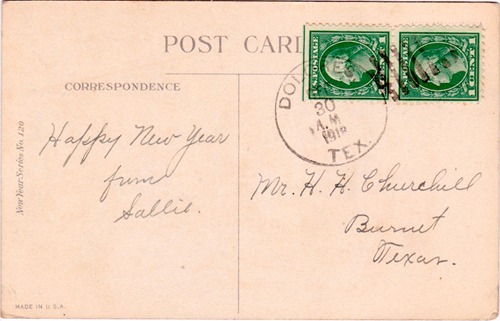 POST CARD
U.S. POSTAGE
1 CENT 1
1 CENT 1
30
A.M
1918
TEX.
CORRESPONDENCE
New Year Series No. 120
Happy New Year
from
Sallie.
Mr. H. H. Churchill
Burnet
Texas.
MADE IN U.S.A.